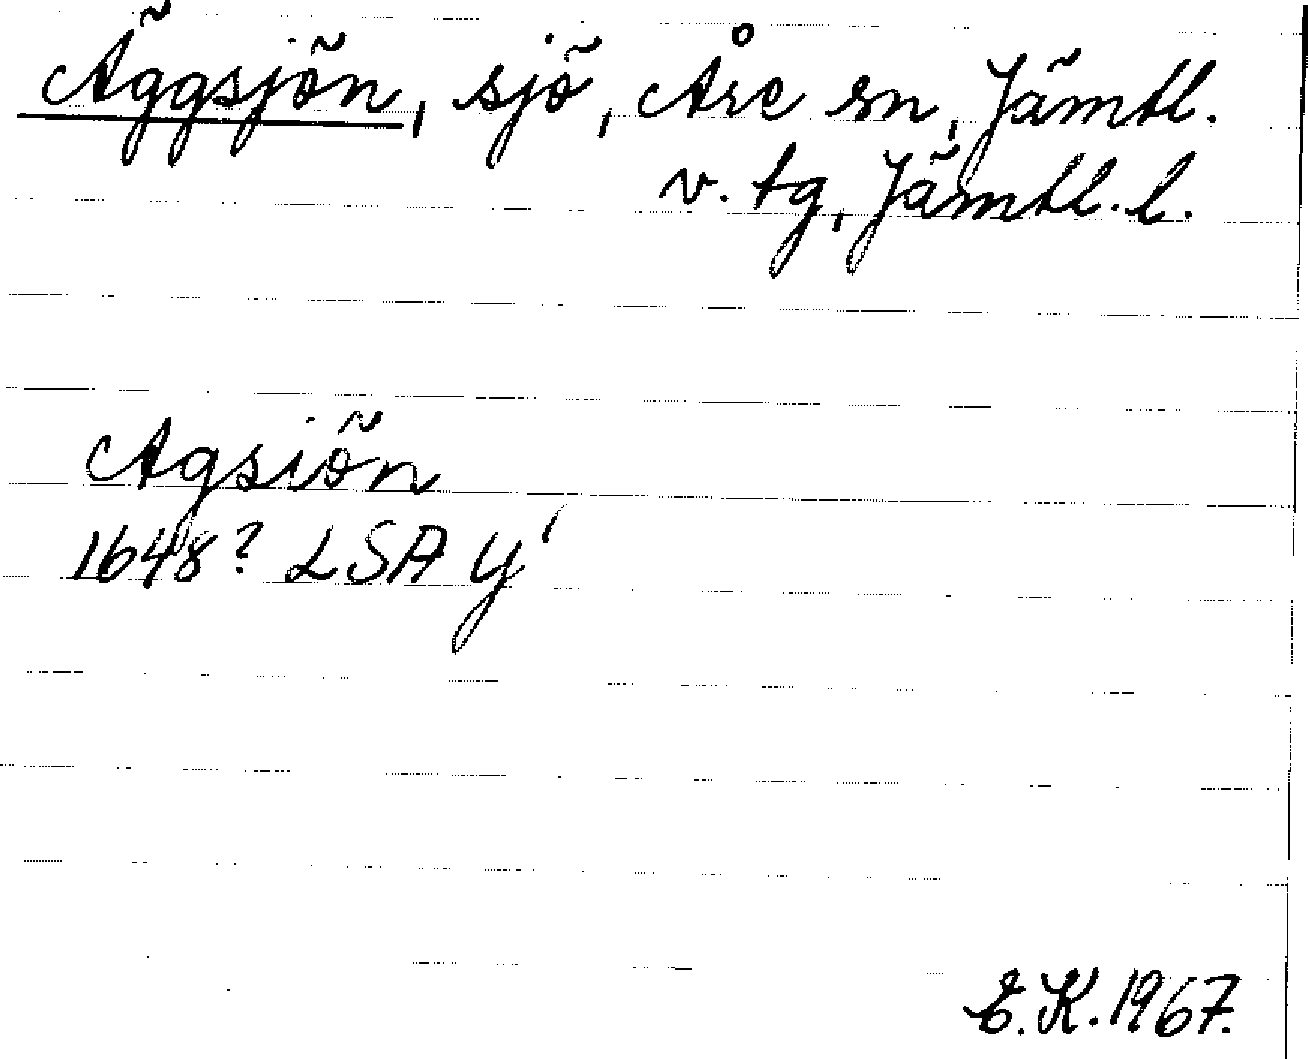 Äggsjön, sjö, Åre sn, Jämtl.
v. tg, Jämtl. l.
Agsiön
1648? LSA Y'
E.K. 1967.